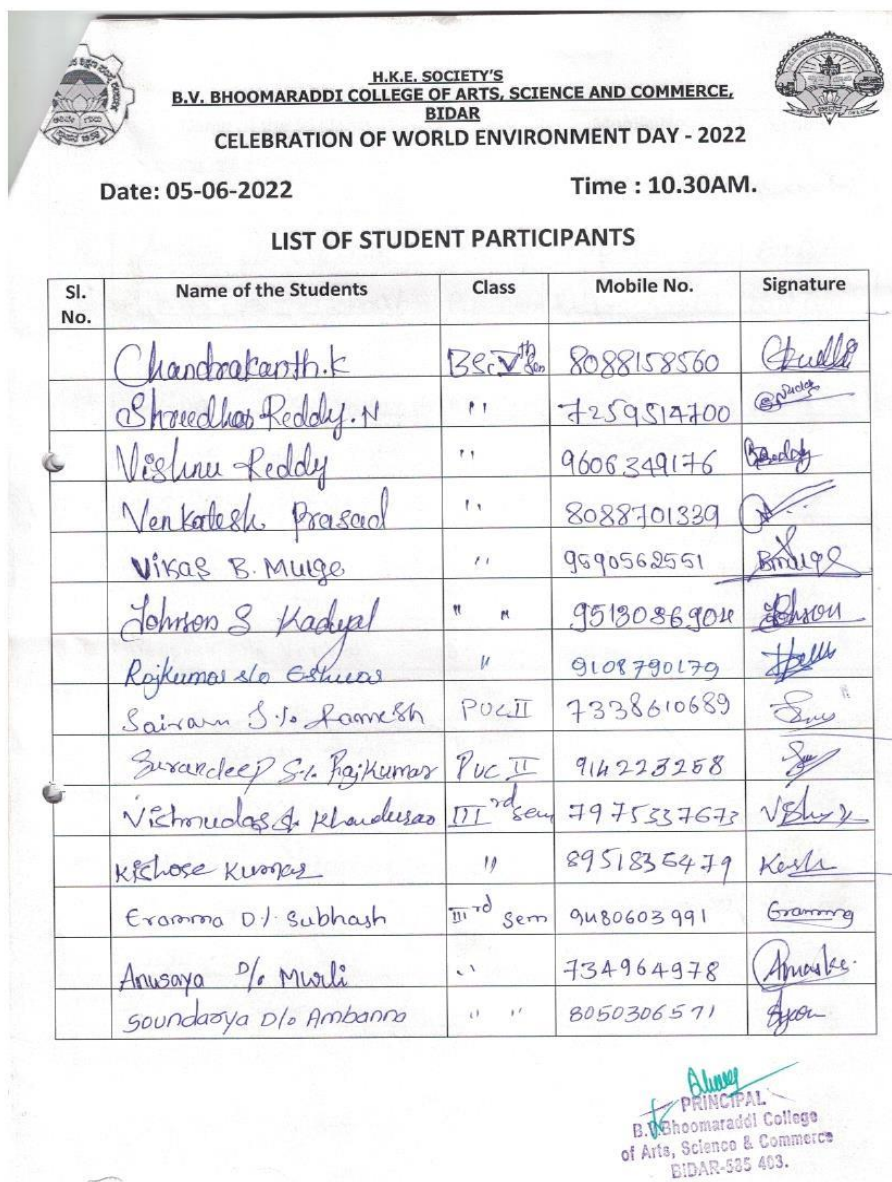 H.K.E. SOCIETY'S
B.V. BHOOMARADDI COLLEGE OF ARTS, SCIENCE AND COMMERCE,
BIDAR
CELEBRATION OF WORLD ENVIRONMENT DAY - 2022
Date: 05-06-2022 Time : 10.30AM.
LIST OF STUDENT PARTICIPANTS
Sl. No. Name of the Students Class Mobile No. Signature
Chandrakanth.K BSc.Vth Sem 8088158560
Shreedhar Reddy.N " 7259514700
Vishnu Reddy " 9606349176 Reddy
Venkatesh Prasad " 8088701339
Vikas B. Mulge " 9690562551 Bmulge
Johnson S Kadyal " " 9513086904 Johnson
Rajkumar s/o Eshwar " 9108790179
Sairam S/o Ramesh PUC II 7338610689
S/o Rajkumar PUC II 914223258
Vishnudas Khanderao IIIrd Sem 7975337673
Kishore Kumar " 8951836479
Eramma D/. Subhash IIIrd Sem 9480603991 Eramma
Anusaya D/o Murli " 734964978
Soundarya D/o Ambanna " " 8050306571
PRINCIPAL
B.V.Bhoomaraddi College
of Arts, Science & Commerce
BIDAR-585 403.